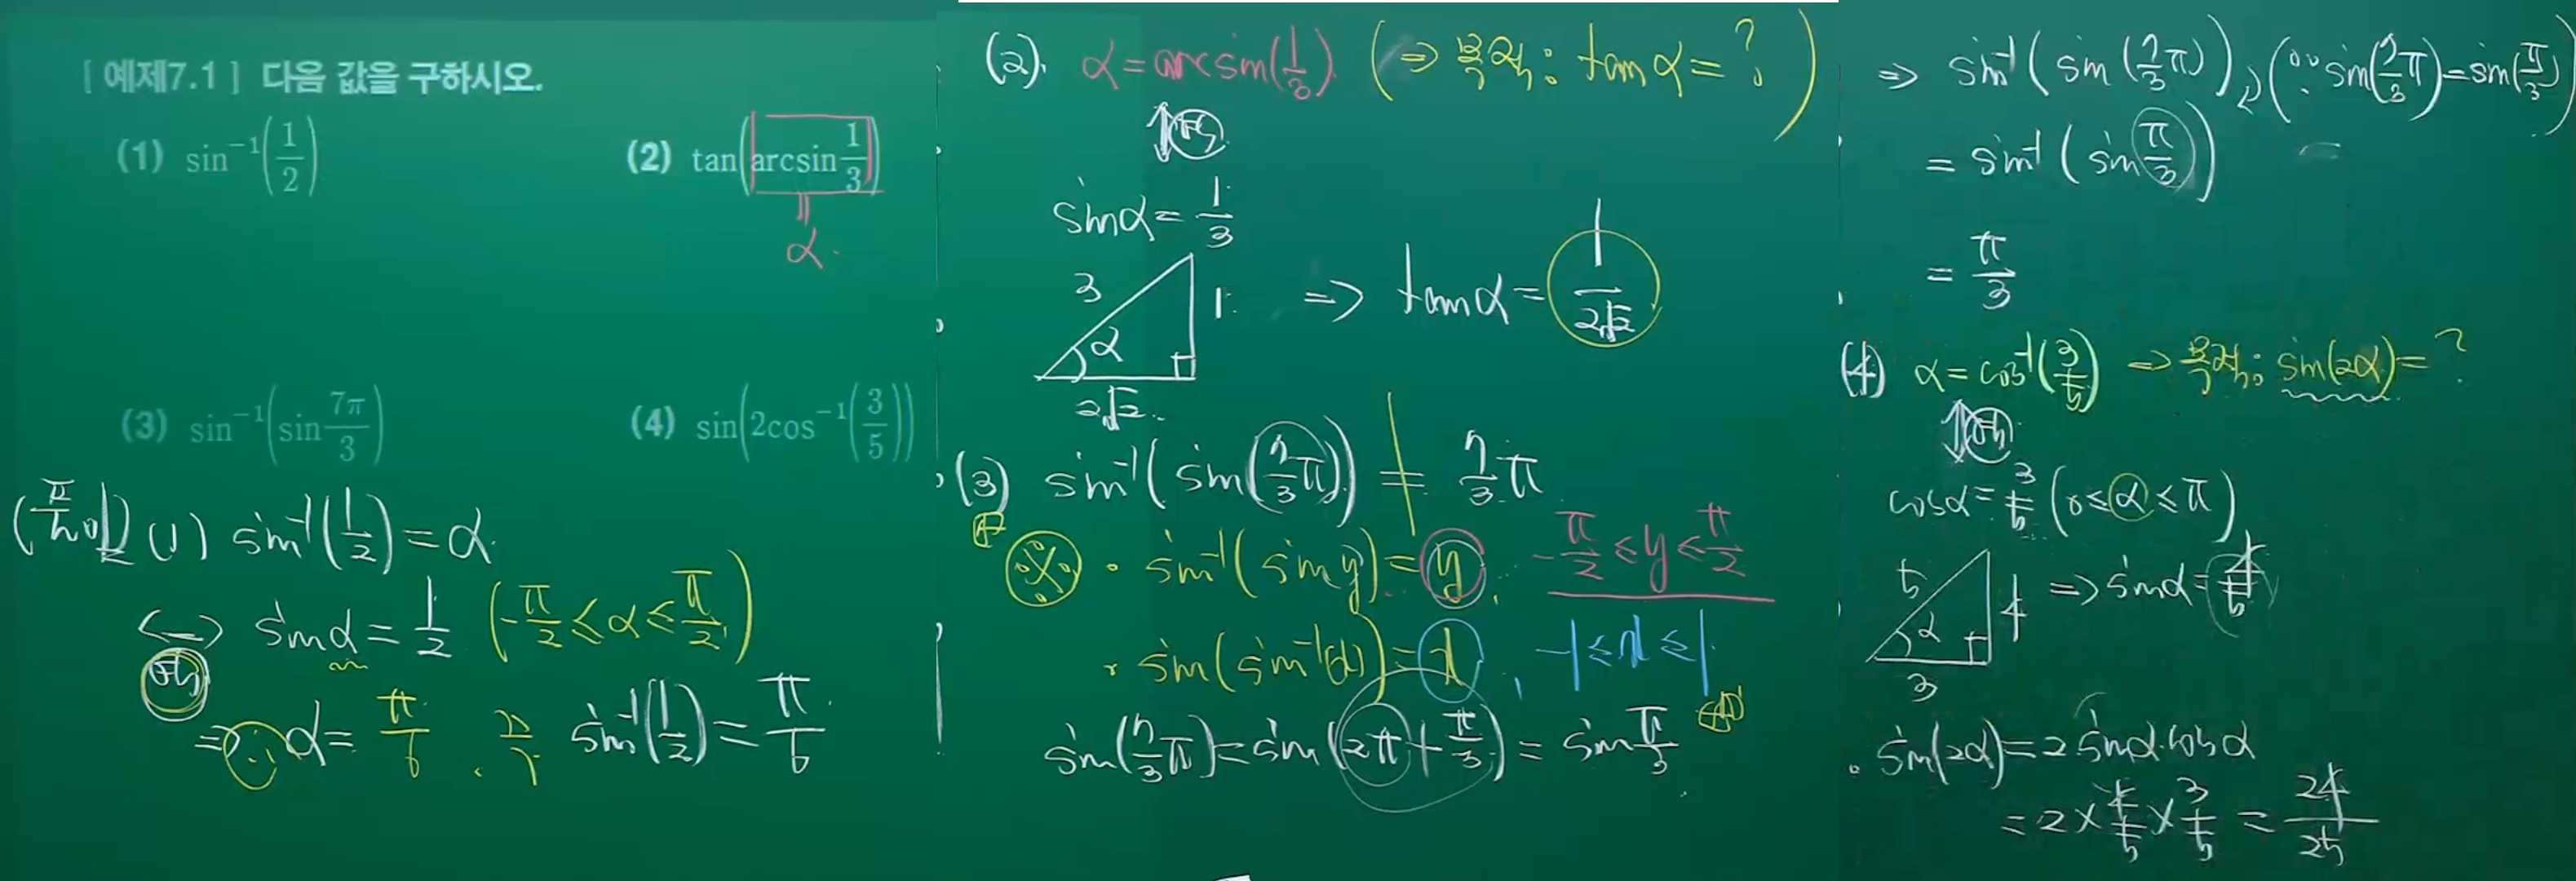 [ 예제7.1 ] 다음 값을 구하시오.
(1) sin⁻¹(1/2)
(2) tan(arcsin 1/3)
= α.
(3) sin⁻¹(sin 7π/3)
(4) sin(2cos⁻¹(3/5))
(풀이) (1) sin⁻¹(1/2) = α.
<-> sinα = 1/2 (-π/2 ≤ α ≤ π/2)
=> α = π/6 . sin⁻¹(1/2) = π/6
(2). α = arcsin(1/3) (=> 목적: tanα = ?)
sinα = 1/3
3 1 α 2√2.
=> tanα = 1/(2√2)
(3) sin⁻¹(sin(7/3 π)) ≠ 7/3 π
※ • sin⁻¹(sin y) = y, -π/2 ≤ y ≤ π/2
• sin(sin⁻¹(x)) = x, -1 ≤ x ≤ 1
sin(7/3 π) = sin(2π + π/3) = sin π/3
=> sin⁻¹(sin(7/3 π)) (∵ sin(7/3 π) = sin(π/3))
= sin⁻¹(sin π/3)
= π/3
(4) α = cos⁻¹(3/5) => 목적: sin(2α) = ?
cosα = 3/5 (0 ≤ α ≤ π)
5 4 α 3
=> sinα = 4/5
• sin(2α) = 2 sinα·cosα
= 2 × 4/5 × 3/5 = 24/25